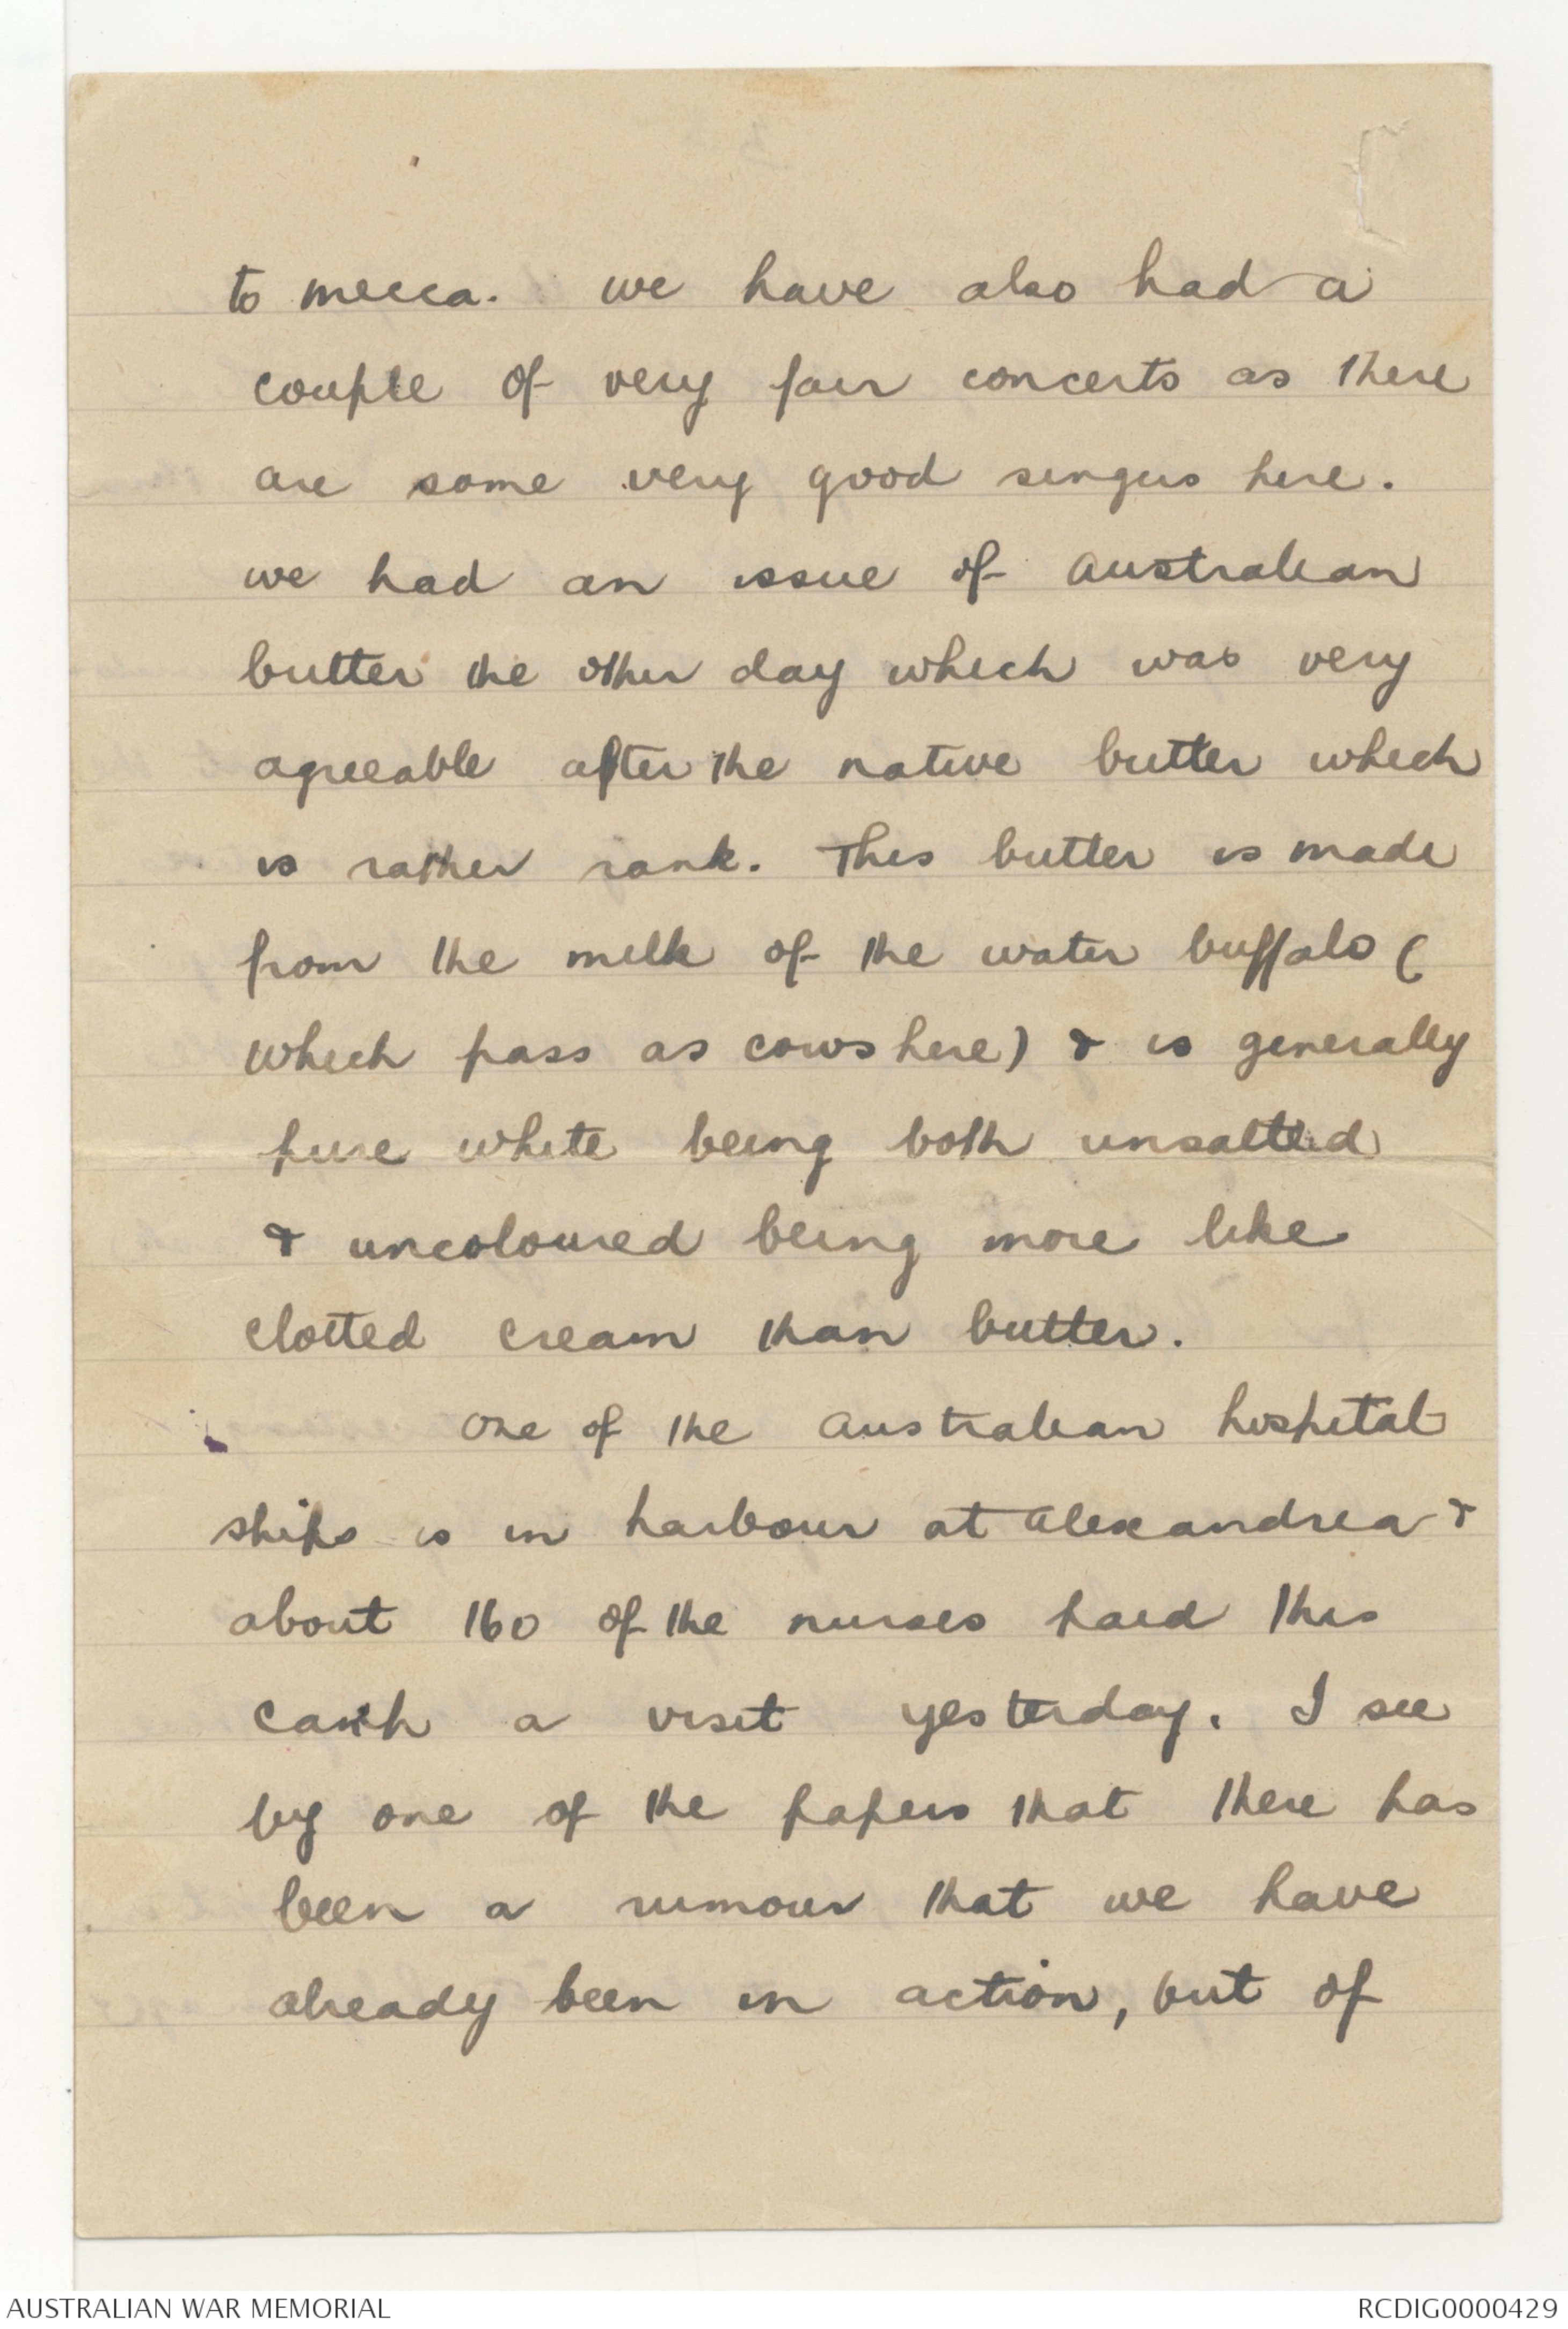 to mecca. we have also had a
couple of very fair concerts as there
are some very good singers here.
we had an issue of Australian
butter the other day which was very
agreeable after the native butter which
is rather rank. This butter is made
from the milk of the water buffalo (
which pass as cows here) & is generally
pure white being both unsalted
& uncoloured being more like
clotted cream than butter.
One of the Australian hospital
ships is in harbour at Alexandria &
about 160 of the nurses paid this
camp a visit yesterday. I see
by one of the papers that there has
been a rumour that we have
already been in action, but of
AUSTRALIAN WAR MEMORIAL
RCDIG0000429